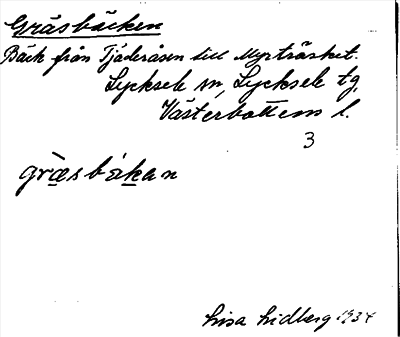 Gräsbäcken
Bäck från Tjäderåsen till Myrträsket.
Lycksele sn, Lycksele tg,
Västerbottens l.
3
gràsbä́kan
Lisa Lidberg 1934